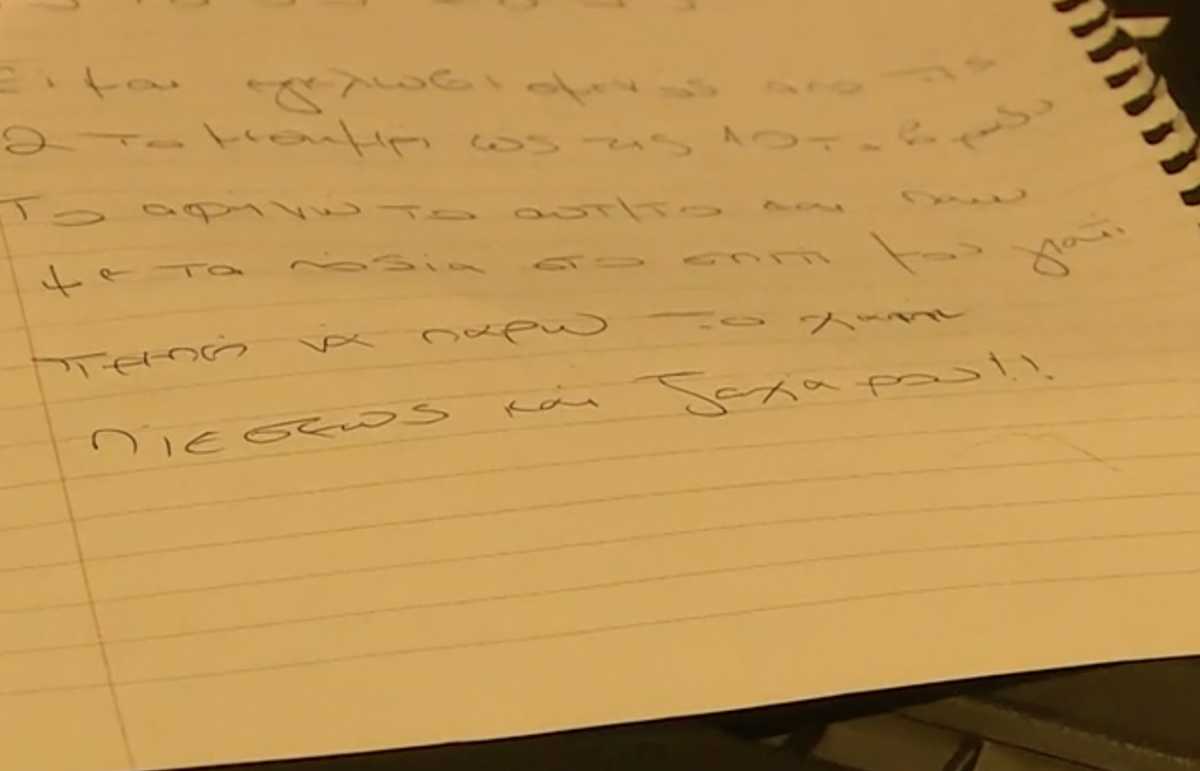 Είμαι εγκλωβισμένος απο τις
2 το μεσημέρι ως τις 10 το βραδυ
Το αφηνω το αυτ/το και παω
με τα πόδια στο σπιτι μου γιατί
πρεπει να παρω το χαπι
πιεσεως και ζαχάρου!!